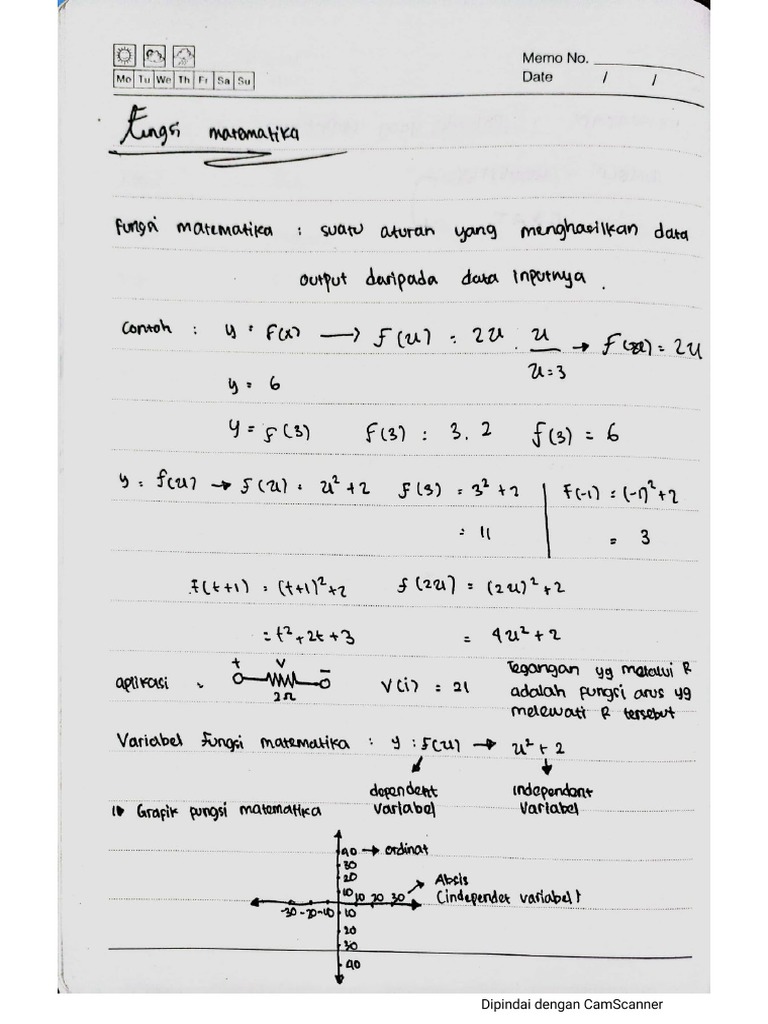 Memo No.
Mo Tu We Th Fr Sa Su
Date / /
Fungsi matematika
Fungsi matematika : suatu aturan yang menghasilkan data
output daripada data inputnya .
Contoh : y = f(x) → f(u) = 2u . u → f(u) = 2u
u = 3
y = 6
y = f(3) f(3) : 3.2 f(3) = 6
y = f(u) → f(u) = u² + 2 f(3) = 3² + 2 f(-1) = (-1)² + 2
= 11 = 3
f(t+1) = (t+1)² + 2 f(2u) = (2u)² + 2
= t² + 2t + 3 = 4u² + 2
aplikasi + V - 2Ω V(i) = 2i Tegangan yg melalui R
adalah fungsi arus yg
melewati R tersebut
Variabel fungsi matematika : y : f(u) → u² + 2
dependent independent
variabel variabel
1) Grafik fungsi matematika
40 → ordinat
30
20
10 10 20 30 → Absis
(independet variabel)
-30 -20 -10 10
20
30
40
Dipindai dengan CamScanner